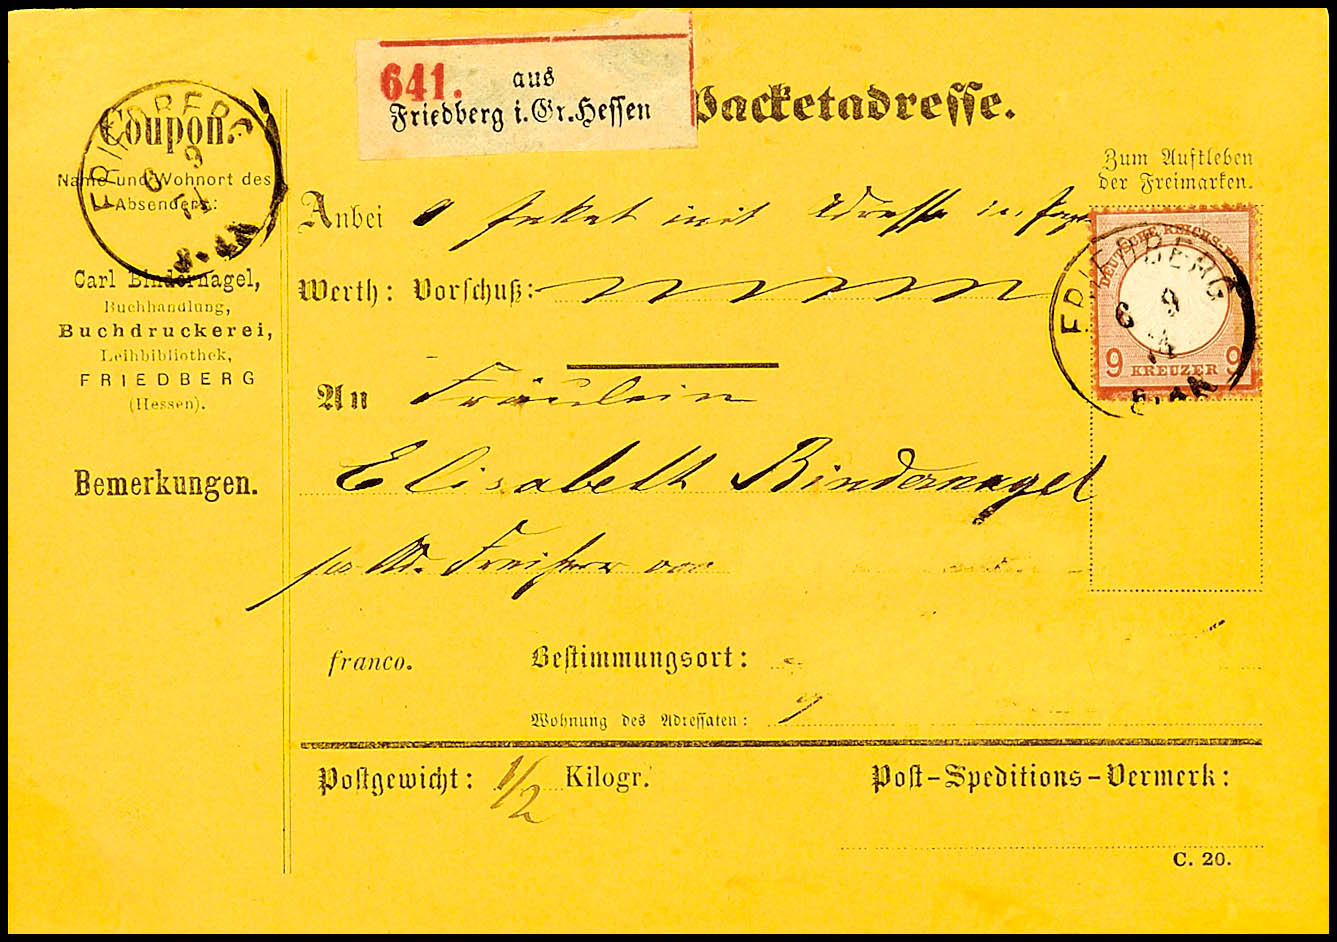 641. aus
Friedberg i. Gr. Hessen
Packetadresse.
Coupon.
Name und Wohnort des
Absenders:
Carl Bindernagel,
Buchhandlung,
Buchdruckerei,
Leihbibliothek,
FRIEDBERG
(Hessen).
Bemerkungen.
FRIEDBERG
6 9
FRIEDBERG
6 9
74
Zum Aufkleben
der Freimarken.
DEUTSCHE REICHS-PO
9 KREUZER 9
Anbei 1 Paket mit Adresse
Werth: Vorschuß:
An Fräulein
Elisabeth Bindernagel
Freiherr von
franco. Bestimmungsort:
Wohnung des Adressaten:
Postgewicht: 1/2 Kilogr.
Post-Speditions-Vermerk:
C. 20.